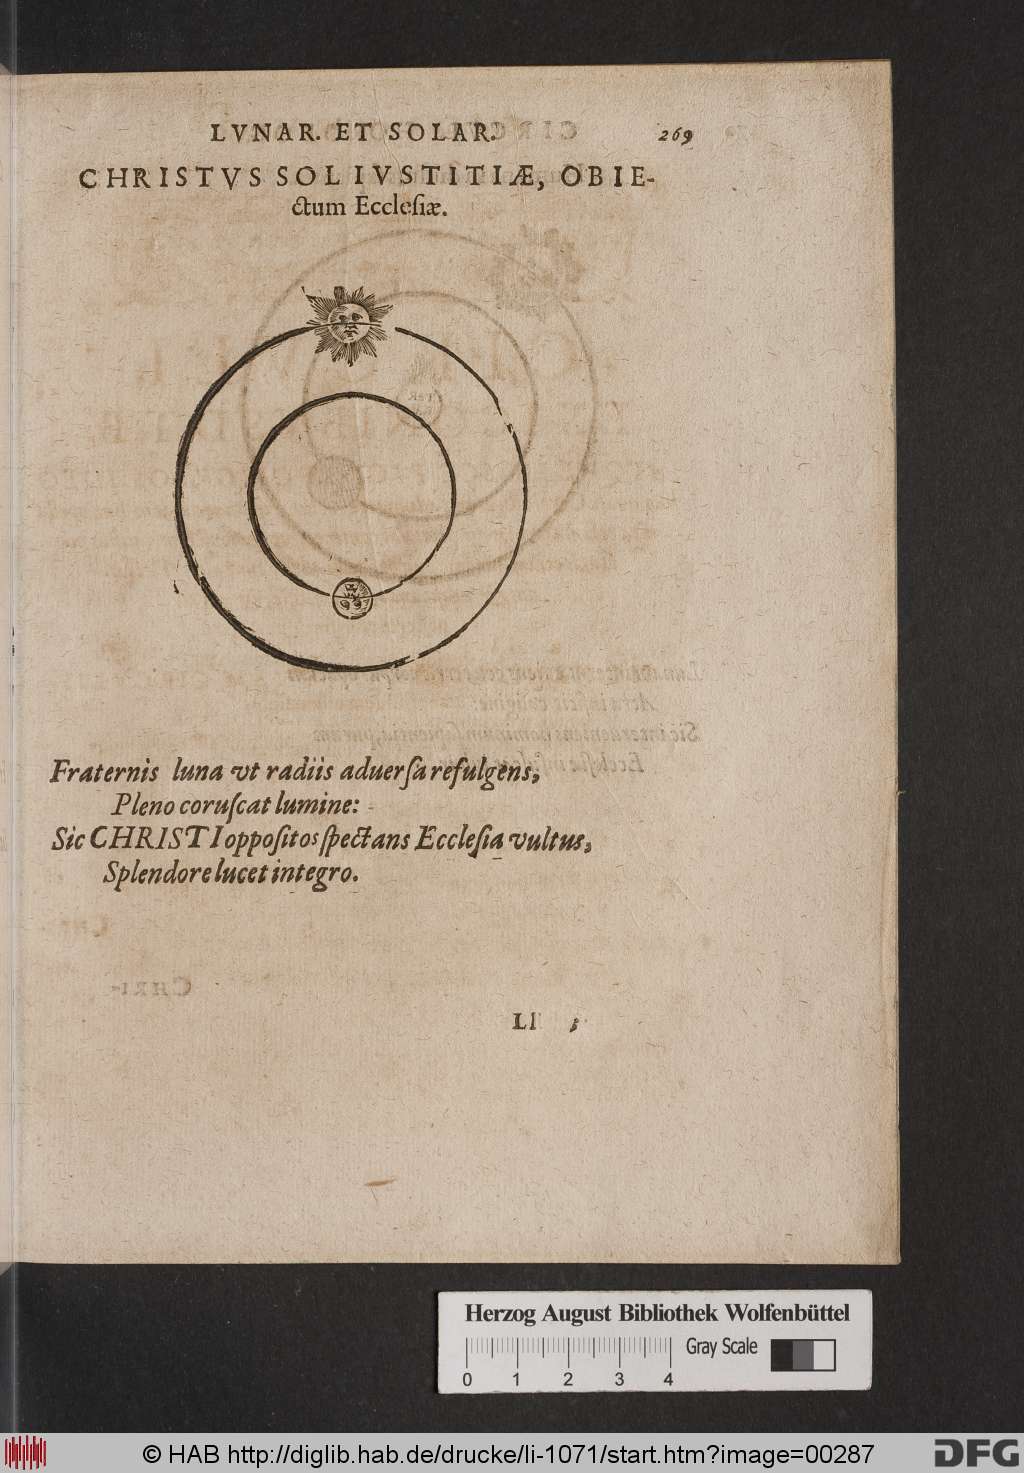 LVNAR. ET SOLAR. 269
CHRISTVS SOL IVSTITIÆ, OBIE-
ctum Ecclesiæ.
Fraternis luna vt radiis aduerſa refulgens,
Pleno coruſcat lumine:
Sic CHRISTI oppoſitos ſpectans Eccleſia vultus,
Splendore lucet integro.
Ll 3
Herzog August Bibliothek Wolfenbüttel
Gray Scale
0 1 2 3 4
© HAB http://diglib.hab.de/drucke/li-1071/start.htm?image=00287
DFG